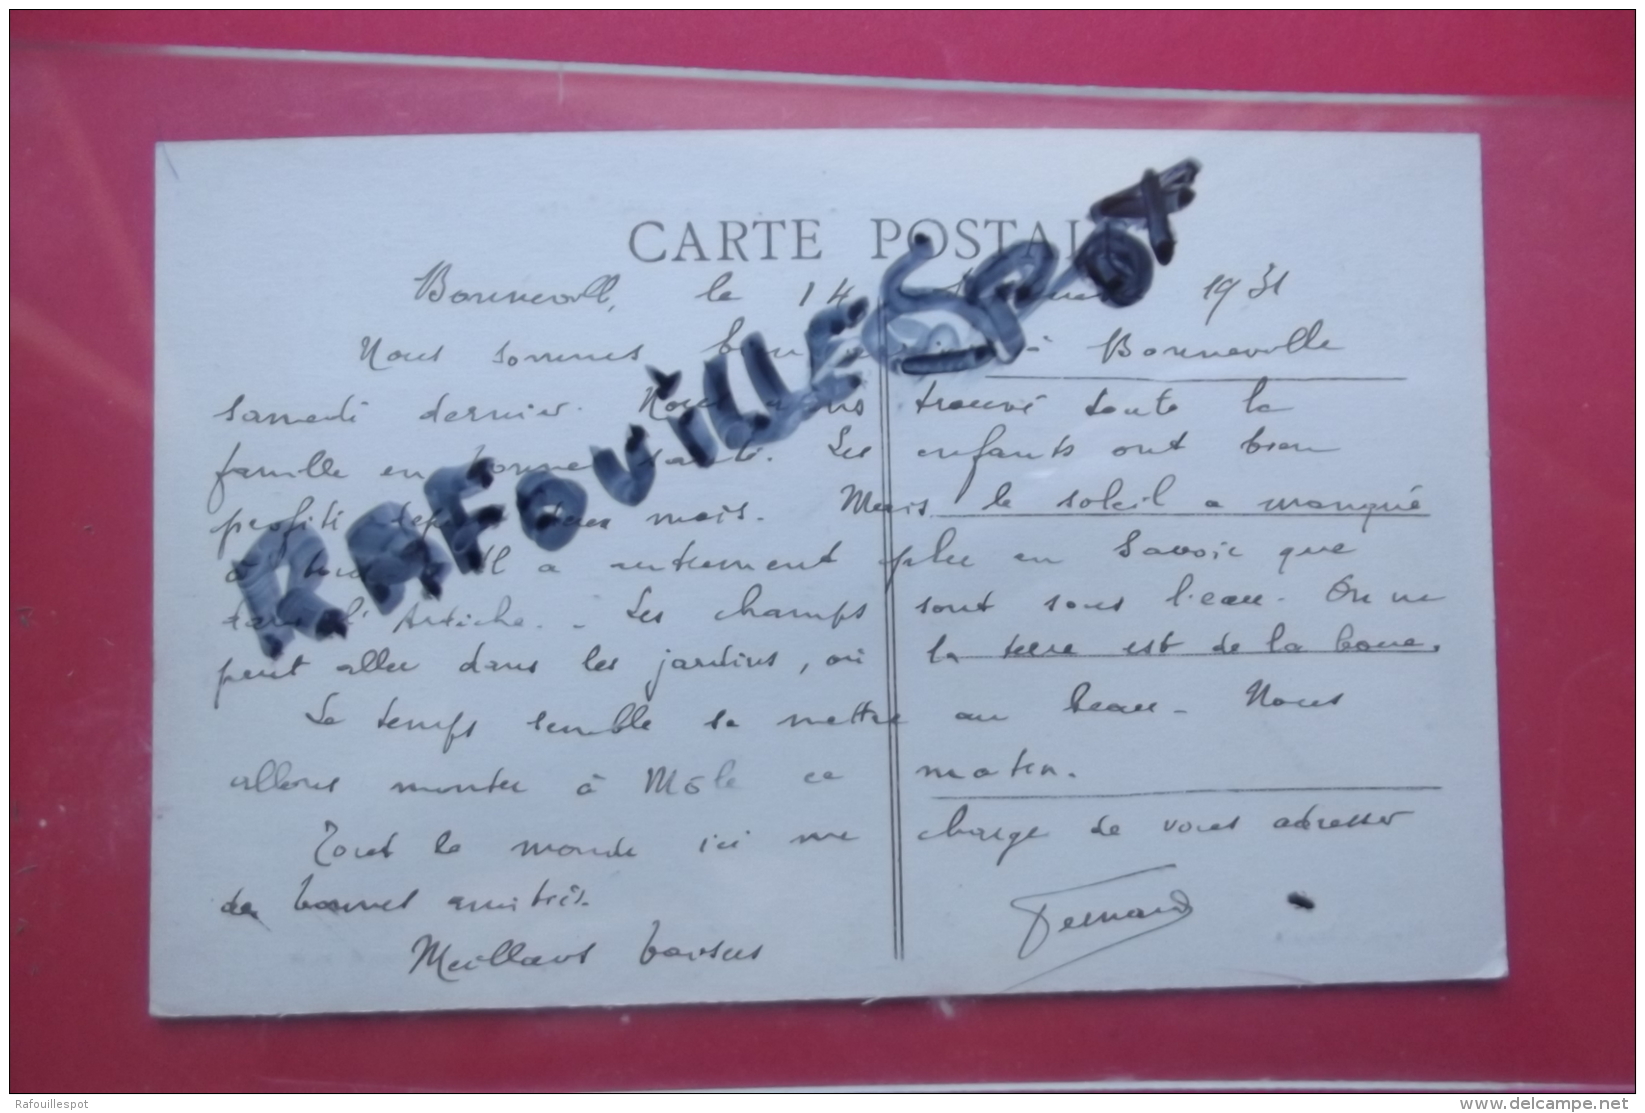 CARTE POSTALE
RAFOUILLESPOT
Bonneville, le 14 1931
Nous sommes bien à Bonneville
samedi dernier. Nous avons trouvé toute la
famille en bonne santé. Les enfants ont bien
profité depuis deux mois. Mais le soleil a manqué
à Il a plu en Savoie que
dans l'Ardèche. - Les champs sont sous l'eau. On ne
peut aller dans les jardins, où la terre est de la boue.
Le temps semble se mettre au beau - Nous
allons monter à Môle ce matin.
Tout le monde ici me charge de vous adresser
de bonnes amitiés.
Meilleurs baisers Fernand
Rafouillespot
www.delcampe.net